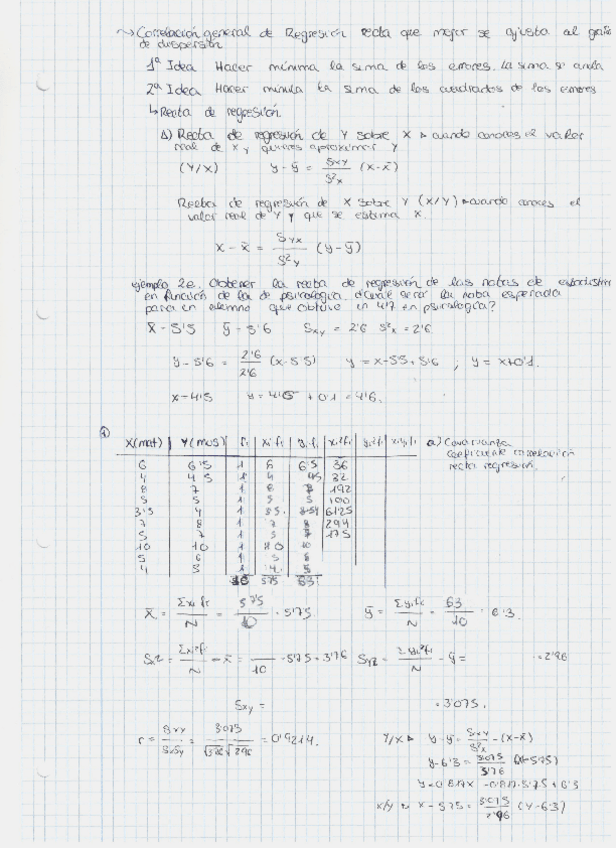 ~> Correlación general de Regresión recta que mejor se ajusta al grafico
de dispersión
1ª Idea Hacer mínima la suma de los errores. La suma se anula
2ª Idea Hacer mínula la suma de los cuadrados de los errores
↳ Recta de regresión
Δ) Recta de regresión de Y sobre X ▸ cuando conoces el valor
real de X y quieres aproximar Y
(Y/X) y - ȳ = Sxy / S²x (x - x̄)
Recta de regresión de X sobre Y (X/Y) ▸ cuando conoces el
valor real de Y y que se estima X.
X - x̄ = Syx / S²y (y - ȳ)
ejemplo 2e. Obtener la recta de regresión de las notas de estadística
en función de la de psicología. ¿Cuál será la nota esperada
para un alumno que obtuvo un 4'7 en psicología?
X̄ - 5'5 ȳ - 5'6 Sxy = 2'6 S²x = 2'6
y - 5'6 = 2'6 / 2'6 (x - 5'5) y = x - 5'5 + 5'6 , y = x + 0'1.
x = 4'5 y = 4'5 + 0'1 = 4'6.
X(mat) | Y(mus) | fi | xi·fi | yi·fi | xi²fi | yi²fi | xiyifi a) Covarianza
coeficiente correlación
recta regresión.
6 6'5 1 6 6'5 36
4 4'5 1 4 4'5 32
8 7 1 8 7 192
5 5 1 5 5 100
3'5 4 1 3'5 6125
7 8 1 7 8 294
5 7 1 5 7 175
10 10 1 10 10
5 6 1 5 6
4 5 1 4 5
10 57'5 63
X̄ = Σxi·fi / N = 57'5 / 10 = 5'75 ȳ = Σyi·fi / N = 63 / 10 = 6'3.
Sx2 = Σxi²fi / N - x̄ = / 10 - 5'75 = 3'76 Sy2 = Σyi²fi / N - ȳ = = 2'96
Sxy = = 3'075.
r = Sxy / SxSy = 3'075 / √3'76 √2'96 = 0'9214.
Y/X ▸ y - ȳ = Sxy / S²x - (x - x̄)
y - 6'3 = 3'075 / 3'76 (x - 5'75)
y = 0'817x - 0'817·5'75 + 6'3
x/y ▸ x - 5'75 = 3'075 / 2'96 (y - 6'3)